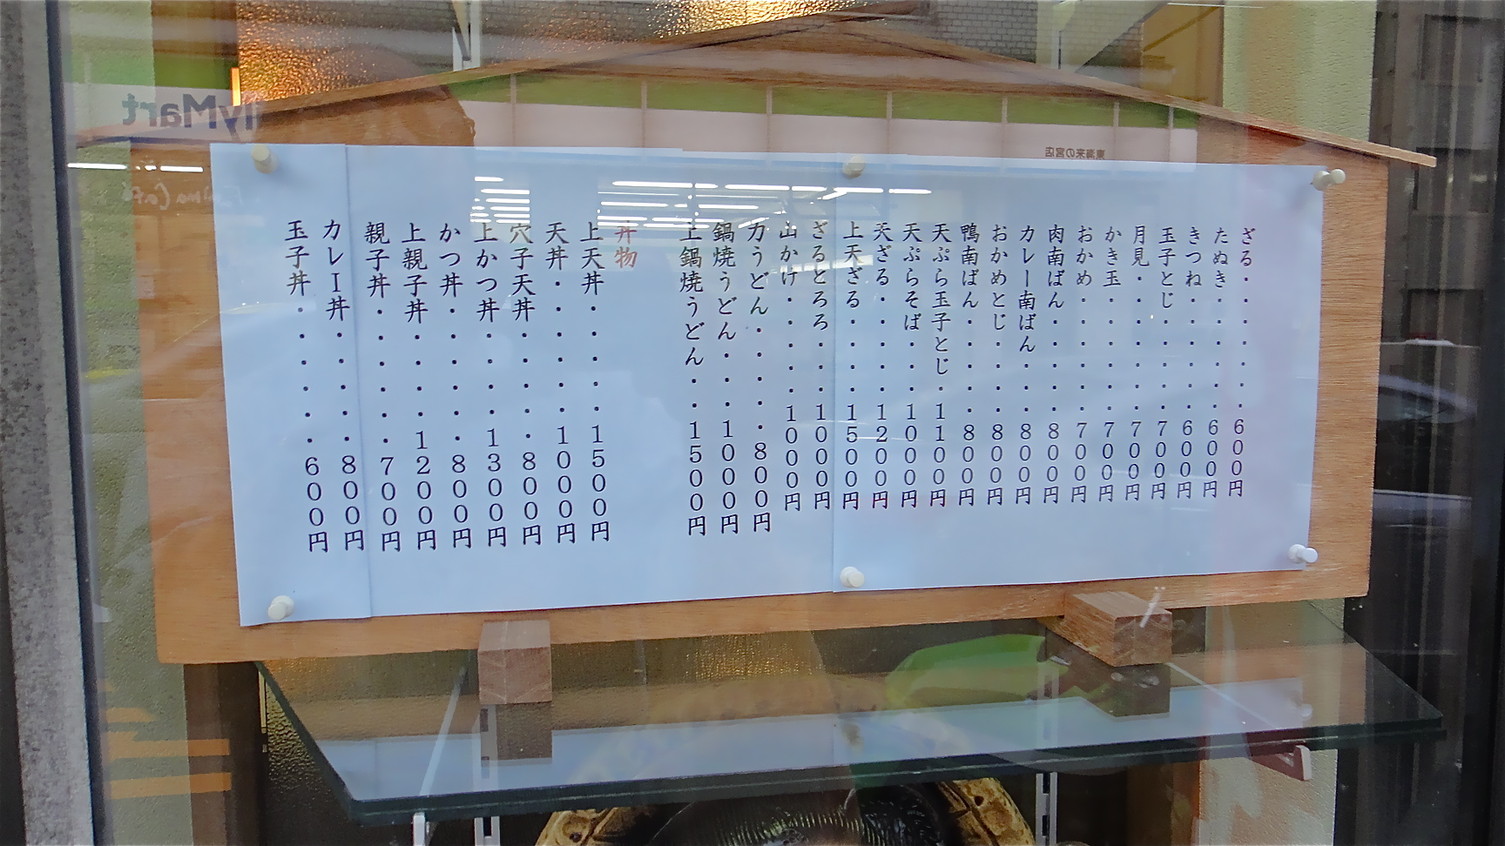 ざる・・・・・・600円
たぬき・・・・・600円
きつね・・・・・600円
玉子とじ・・・・700円
月見・・・・・・700円
かき玉・・・・・700円
おかめ・・・・・700円
肉南ばん・・・・800円
カレー南ばん・・800円
おかめとじ・・・800円
鴨南ばん・・・・800円
天ぷら玉子とじ・1100円
天ぷらそば・・・1000円
天ざる・・・・・1200円
上天ざる・・・・1500円
ざるとろろ・・・1000円
山かけ・・・・・1000円
力うどん・・・・・800円
鍋焼うどん・・・1000円
上鍋焼うどん・・1500円
丼物
上天丼・・・・・1500円
天丼・・・・・・1000円
穴子天丼・・・・・800円
上かつ丼・・・・1300円
かつ丼・・・・・・800円
上親子丼・・・・1200円
親子丼・・・・・・700円
カレー丼・・・・・・800円
玉子丼・・・・・・600円
lyMart